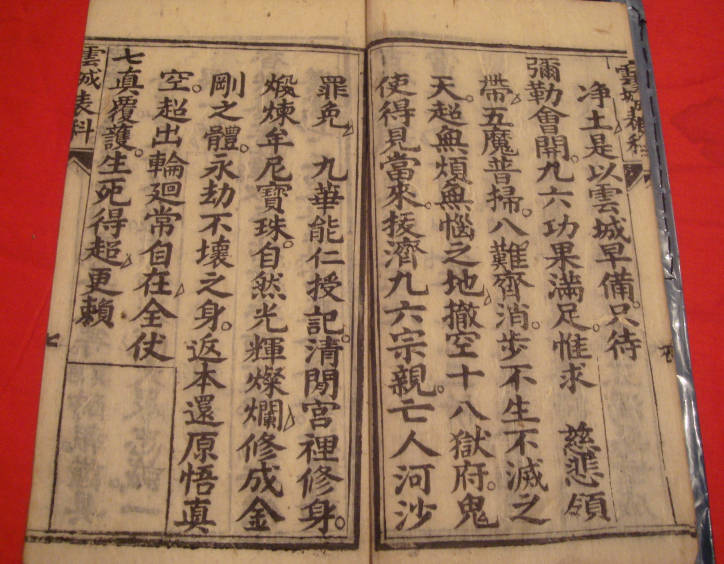 净土是以雲城早備。只待
彌勒會開。九六功果滿足。惟求 慈悲領
帶。五魔普掃。八難齊消。步不生不滅之
天。超無煩無惱之地。撤空十八獄府。鬼
使得見當來。拔濟九六宗親。亡人河沙
罪免 九華能仁授記。清閒宮裡修身。
煅煉牟尼寶珠。自然光輝燦爛修成金
剛之體。永劫不壞之身。返本還原悟真
空。超出輪廻常自在全仗
七真覆護。生死得超更賴
雲城表科
七